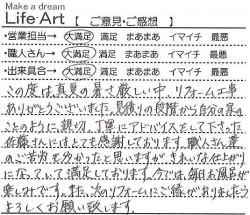 Make a dream
Life・Art 【 ご意見・ご感想 】
・営業担当→ 大満足 満足 まあまあ イマイチ 最悪
・職人さん→ 大満足 満足 まあまあ イマイチ 最悪
・出来具合→ 大満足 満足 まあまあ イマイチ 最悪
この度は真夏の暑さ厳しい中、リフォーム工事
ありがとうございました。見積りの段階から自分の家の
ことのように、親切、丁寧にアドバイスをして下さった
佐藤さんにはとても感謝しております。職人さん達
のご苦労も多かったと思いますが、きれいな仕上がり
になっていて満足しております。今では、毎日お風呂が
楽しみです。また、次のリフォームにご縁がありましたら
よろしくお願い致します。